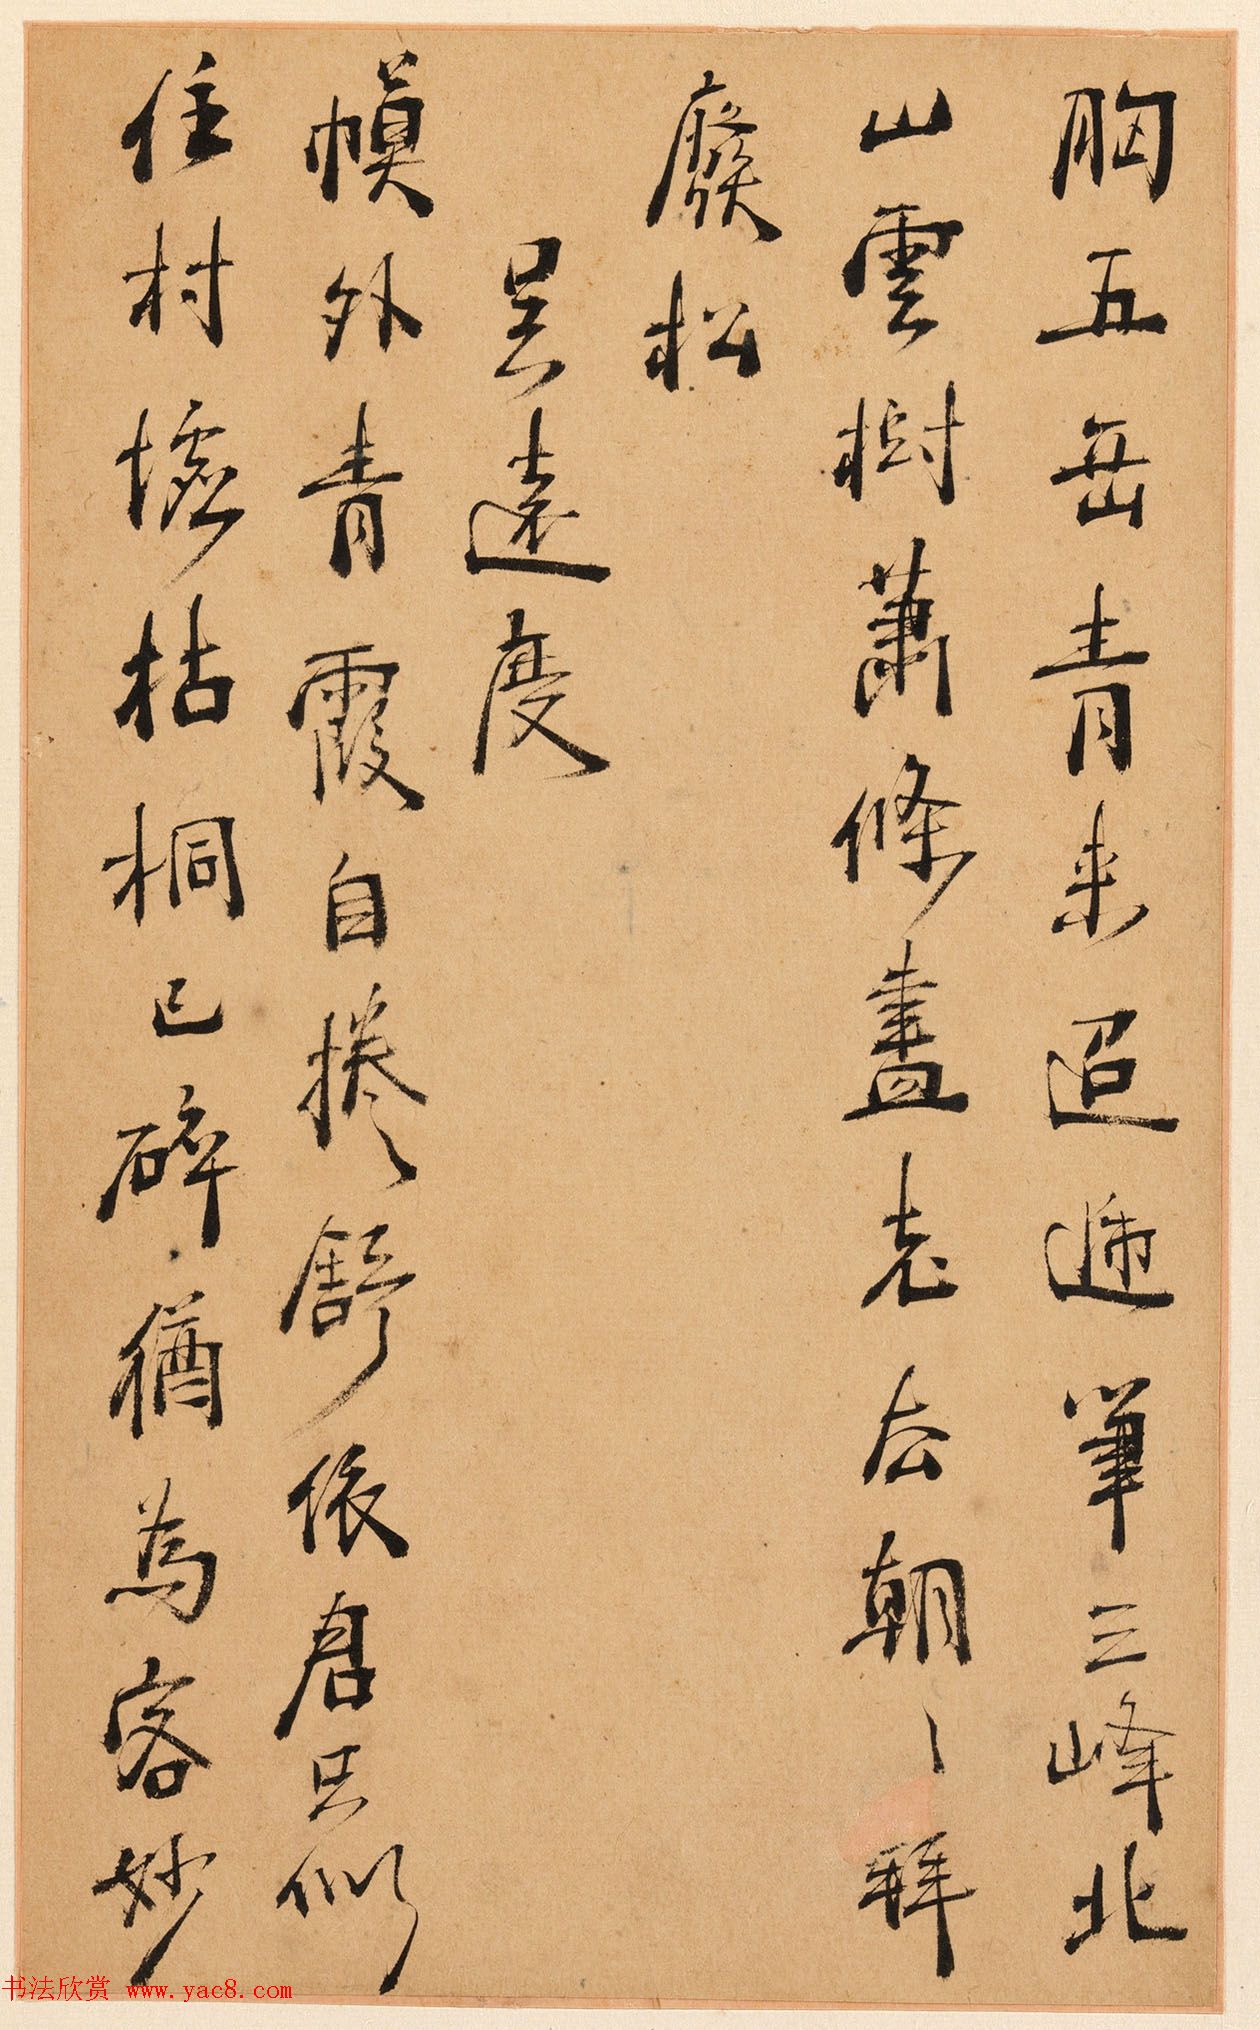 胸五岳青来迢遞筆三峰北
山雲樹蕭條盡老去朝〻拜
廢松
吴遠度
幀外青霞自捲舒依君只似
住村墟枯桐已碎猶為客妙
书法欣赏 www.yac8.com